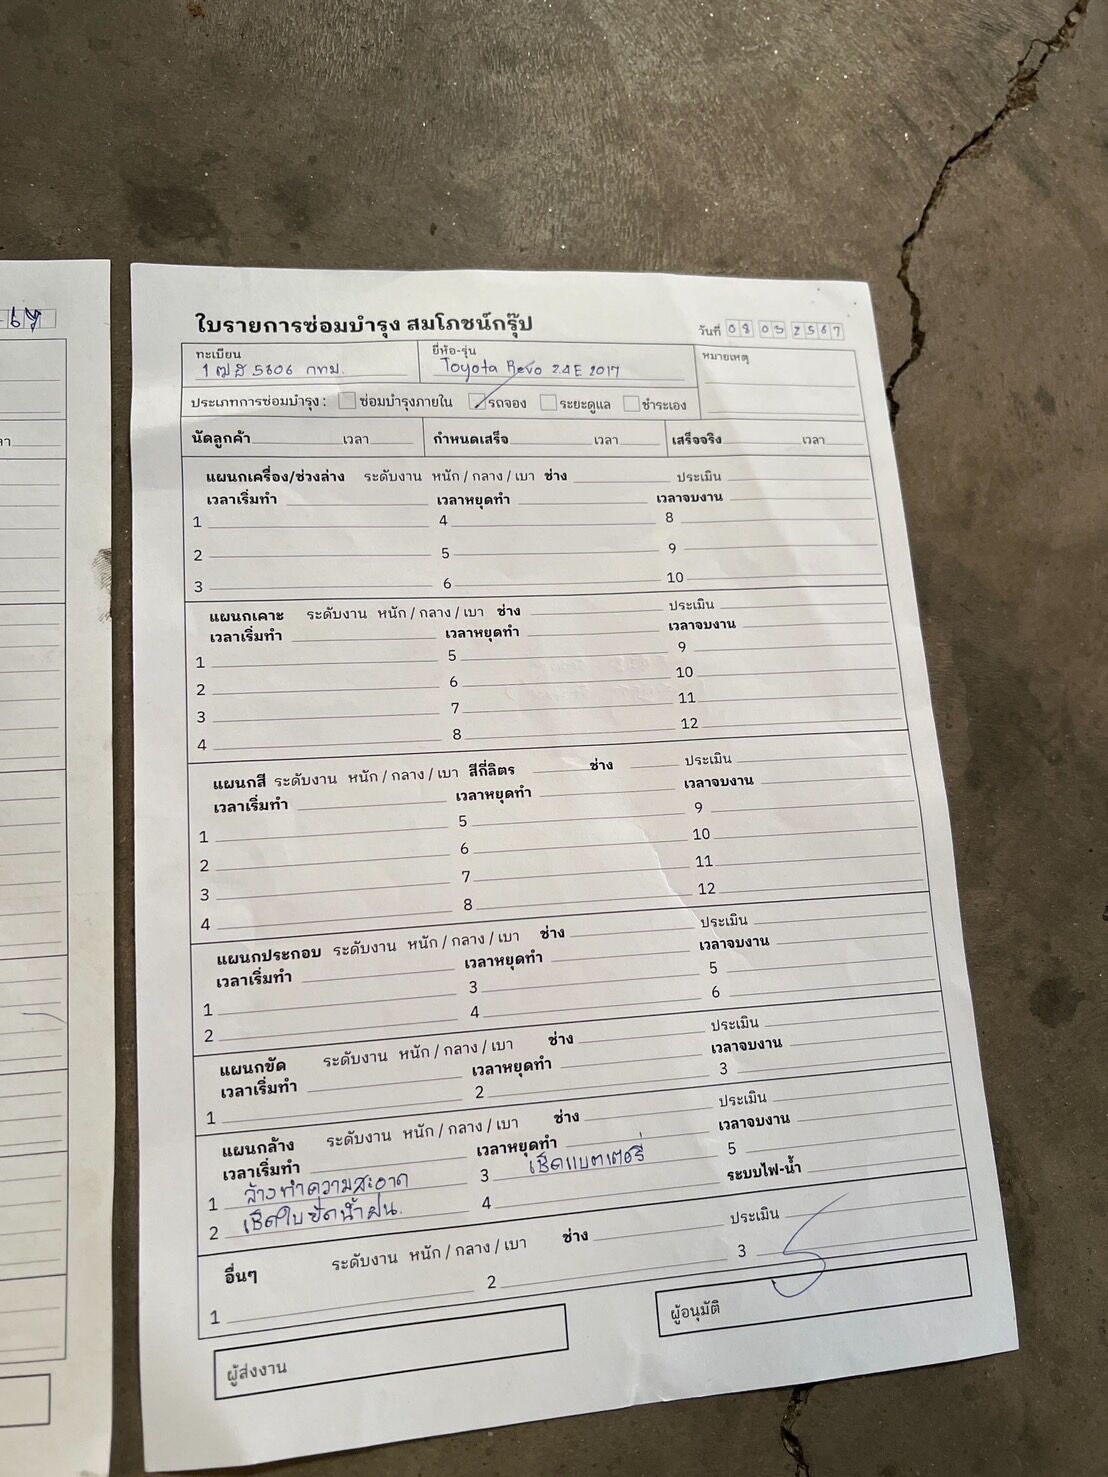 ใบรายการซ่อมบำรุง สมโภชน์กรุ๊ป
วันที่ 08 03 2567
ทะเบียน
5606 กทม.
ยี่ห้อ-รุ่น
Toyota Revo 2.4E 2017
หมายเหตุ
ประเภทการซ่อมบำรุง : ซ่อมบำรุงภายใน รถจอง ระยะดูแล ชำระเอง
นัดลูกค้า เวลา กำหนดเสร็จ เวลา เสร็จจริง เวลา
แผนกเครื่อง/ช่วงล่าง ระดับงาน หนัก / กลาง / เบา ช่าง ประเมิน
เวลาเริ่มทำ เวลาหยุดทำ เวลาจบงาน
1 4 8
2 5 9
3 6 10
แผนกเคาะ ระดับงาน หนัก / กลาง / เบา ช่าง ประเมิน
เวลาเริ่มทำ เวลาหยุดทำ เวลาจบงาน
1 5 9
2 6 10
3 7 11
4 8 12
แผนกสี ระดับงาน หนัก / กลาง / เบา สีกี่ลิตร ช่าง ประเมิน
เวลาเริ่มทำ เวลาหยุดทำ เวลาจบงาน
1 5 9
2 6 10
3 7 11
4 8 12
แผนกประกอบ ระดับงาน หนัก / กลาง / เบา ช่าง ประเมิน
เวลาเริ่มทำ เวลาหยุดทำ เวลาจบงาน
1 3 5
2 4 6
แผนกขัด ระดับงาน หนัก / กลาง / เบา ช่าง ประเมิน
เวลาเริ่มทำ เวลาหยุดทำ เวลาจบงาน
1 2 3
แผนกล้าง ระดับงาน หนัก / กลาง / เบา ช่าง ประเมิน
เวลาเริ่มทำ เวลาหยุดทำ เวลาจบงาน
1 ล้างทำความสะอาด 3 เช็คแบตเตอรี่ 5
2 เช็คใบปัดน้ำฝน. 4 ระบบไฟ-น้ำ
อื่นๆ ระดับงาน หนัก / กลาง / เบา ช่าง ประเมิน
1 2 3
ผู้ส่งงาน
ผู้อนุมัติ